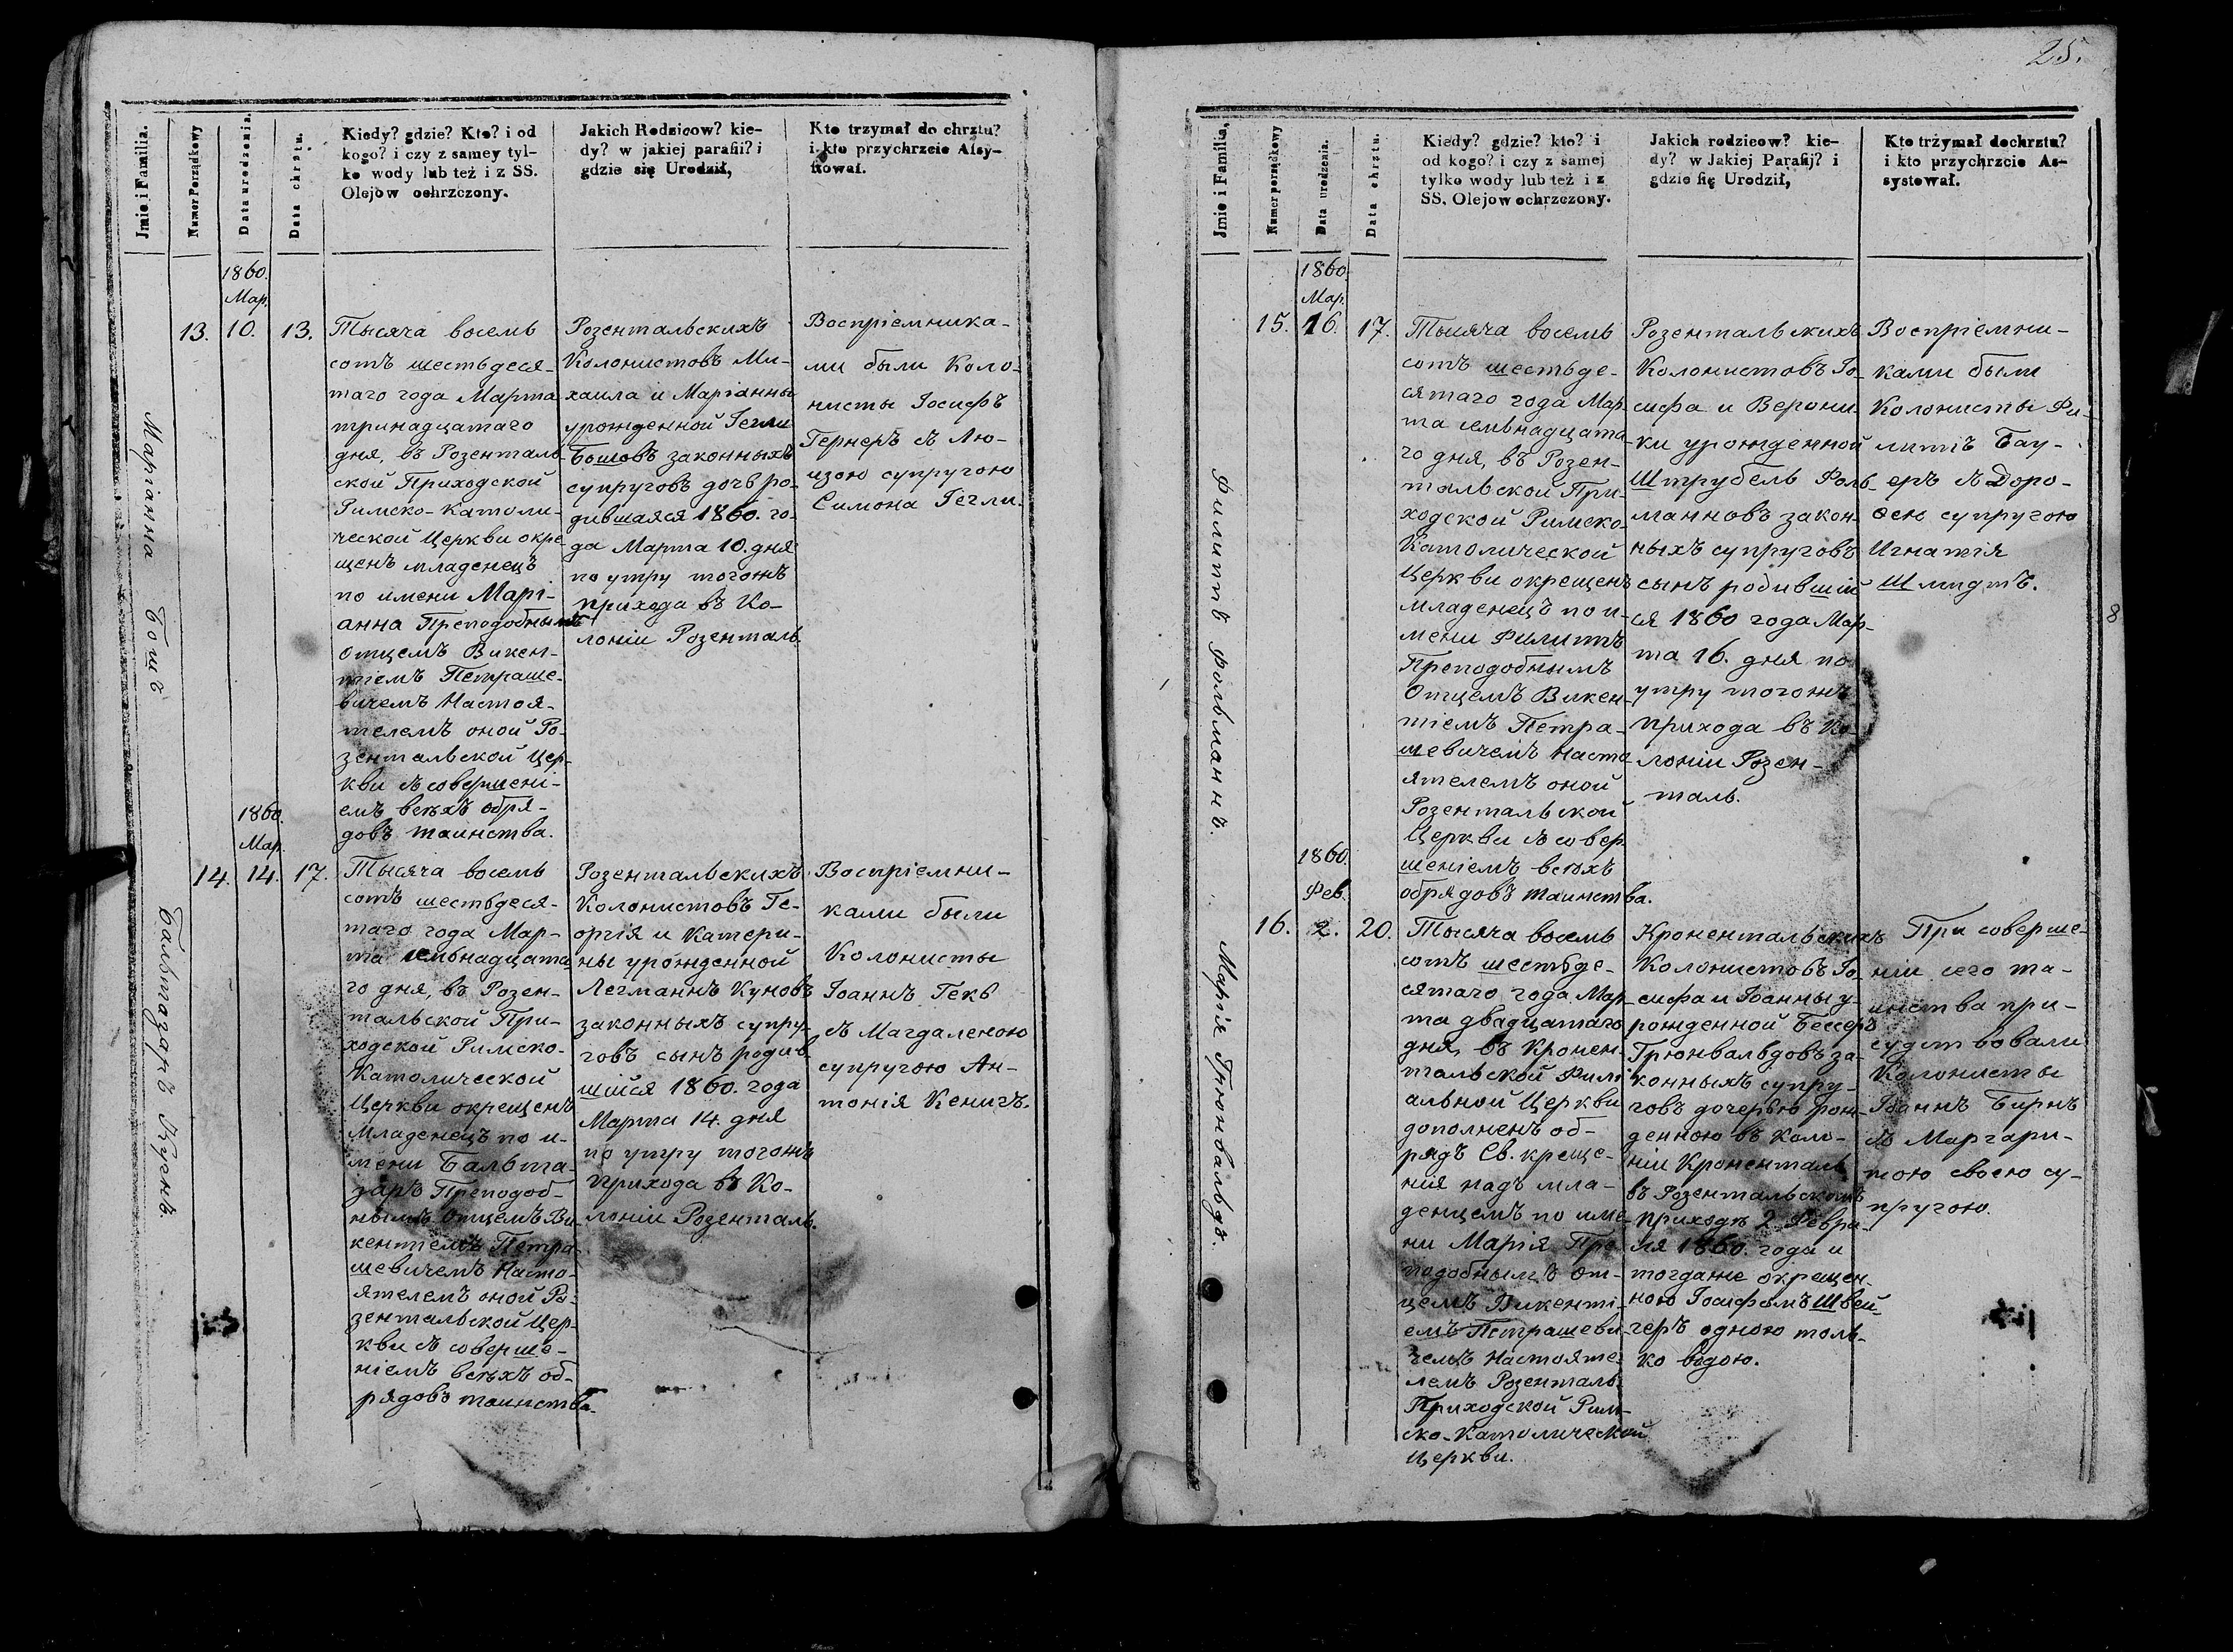 25.
Jmie i Familia.
Numer Porządkowy
Data urodzenia.
Data chrztu.
Kiedy? gdzie? Kto? i od
kogo? i czy z samey tyl-
ko wody lub też i z SS.
Olejów ochrzczony.
Jakich Rodzicow? kie-
dy? w jakiej parafii? i
gdzie się Urodził,
Kto trzymał do chrztu?
i kto przychrzcie Assy-
stował.
Маріанна Бошъ
1860.
Мар.
13. 10. 13.
Тысяча восемь
сотъ шестьдеся-
таго года Марта
тринадцатаго
дня, въ Розенталь
ской Приходской
Римско-Католи-
ческой Церкви окре
щенъ младенецъ
по имени Марі-
анна Преподобнымъ
Отцемъ Викен-
тіемъ Петраше-
вичемъ Настоя-
телемъ оной Ро-
зентальской Цер-
кви съ совершені-
емъ всѣхъ обря-
довъ таинства.
Розентальскихъ
Колонистовъ Ми-
хаила и Маріанны
урожденной Гегли
Бошовъ законныхъ
супруговъ дочь ро-
дившаяся 1860. го-
да Марта 10. дня
по утру тогожъ
прихода въ Ко-
лоніи Розенталь.
Воспріемника-
ми были Коло-
нисты Іосифъ
Гернеръ съ Лю-
изою супругою
Симона Гегли.
Бальтазаръ Кунъ.
1860.
Мар.
14. 14. 17.
Тысяча восемь
сотъ шестьдеся-
таго года Мар-
та семьнадцата
го дня, въ Розен-
тальской При-
ходской Римско-
Католической
Церкви окрещенъ
Младенецъ по и-
мени Бальта-
заръ Преподоб-
нымъ Отцемъ Ви-
кентіемъ Петра-
шевичемъ Насто-
ятелемъ оной Ро-
зентальской Цер-
кви съ соверше-
ніемъ всѣхъ об-
рядовъ таинства.
Розентальскихъ
Колонистовъ Ге-
оргія и Катери-
ны урожденной
Легманнъ Куновъ
законныхъ супру-
говъ сынъ родив-
шійся 1860. года
Марта 14. дня
по утру тогожъ
Прихода въ Ко-
лоніи Розенталь.
Воспріемни-
ками были
Колонисты
Іоаннъ Гекъ
съ Магдаленою
супругою Ан-
тонія Кенигъ.
Jmie i Familia,
Numer porządkowy
Data urodzenia.
Data chrztu.
Kiedy? gdzie? kto? i
od kogo? i czy z samej
tylko wody lub też i z
SS. Olejow ochrzczony.
Jakich rodzicow? kie-
dy? w Jakiej Parafij? i
gdzie się Urodził,
Kto trzymał dochrztu?
i kto przychrzcie As-
systował.
Филиппъ Фольманнъ.
1860.
Мар.
15. 16. 17.
Тысяча восемь
сотъ шестьде-
сятаго года Мар-
та семьнадцата-
го дня, въ Розен-
тальской При-
ходской Римско-
Католической
Церкви окрещенъ
младенецъ по и-
мени Филиппъ
Преподобнымъ
Отцемъ Викен-
тіемъ Петра-
шевичемъ Насто
ятелемъ оной
Розентальской
Церкви съ совер
шеніемъ всѣхъ
обрядовъ таинства.
Розентальскихъ
Колонистовъ Іо-
сифа и Верони-
ки урожденной
Штрубель Фоль-
манновъ закон-
ныхъ супруговъ
сынъ родившій
ся 1860 года Мар-
та 16. дня по
утру тогожъ
прихода въ Ко-
лоніи Розен-
таль.
Воспріемни-
ками были
Колонисты Фи-
липпъ Бау-
еръ съ Доро-
ѳею супругою
Игнатія
Шмидтъ.
8
Марія Грюнвальдъ.
1860.
Фев.
16. 2. 20.
Тысяча восемь
сотъ шестьде-
сятаго года Мар-
та двадцатаго
дня, въ Кронен-
тальской Филі
альной Церкви
дополненъ об-
рядъ Св. креще-
нія надъ мла-
денцемъ по име-
ни Марія Пре-
подобнымъ От-
цемъ Викенті-
емъ Петрашеви-
чемъ Настояте-
лемъ Розенталь.
Приходской Рим-
ско-Католической
Церкви.
Кронентальскихъ
Колонистовъ Іо-
сифа и Іоанны у-
рожденной Бессеръ
Грюнвальдовъ за-
конныхъ супру-
говъ дочерью рож-
денною въ Коло-
ніи Кроненталь
въ Розентальскомъ
приходѣ 2. Февра-
ля 1860. года и
тогдаже окрещен-
ною Іосифомъ Швей
геръ одною толь-
ко водою.
При соверше-
ніи сего та-
инства при-
судствовали
Колонисты
Іоаннъ Бирнъ
съ Маргари-
тою своею су-
пругою.